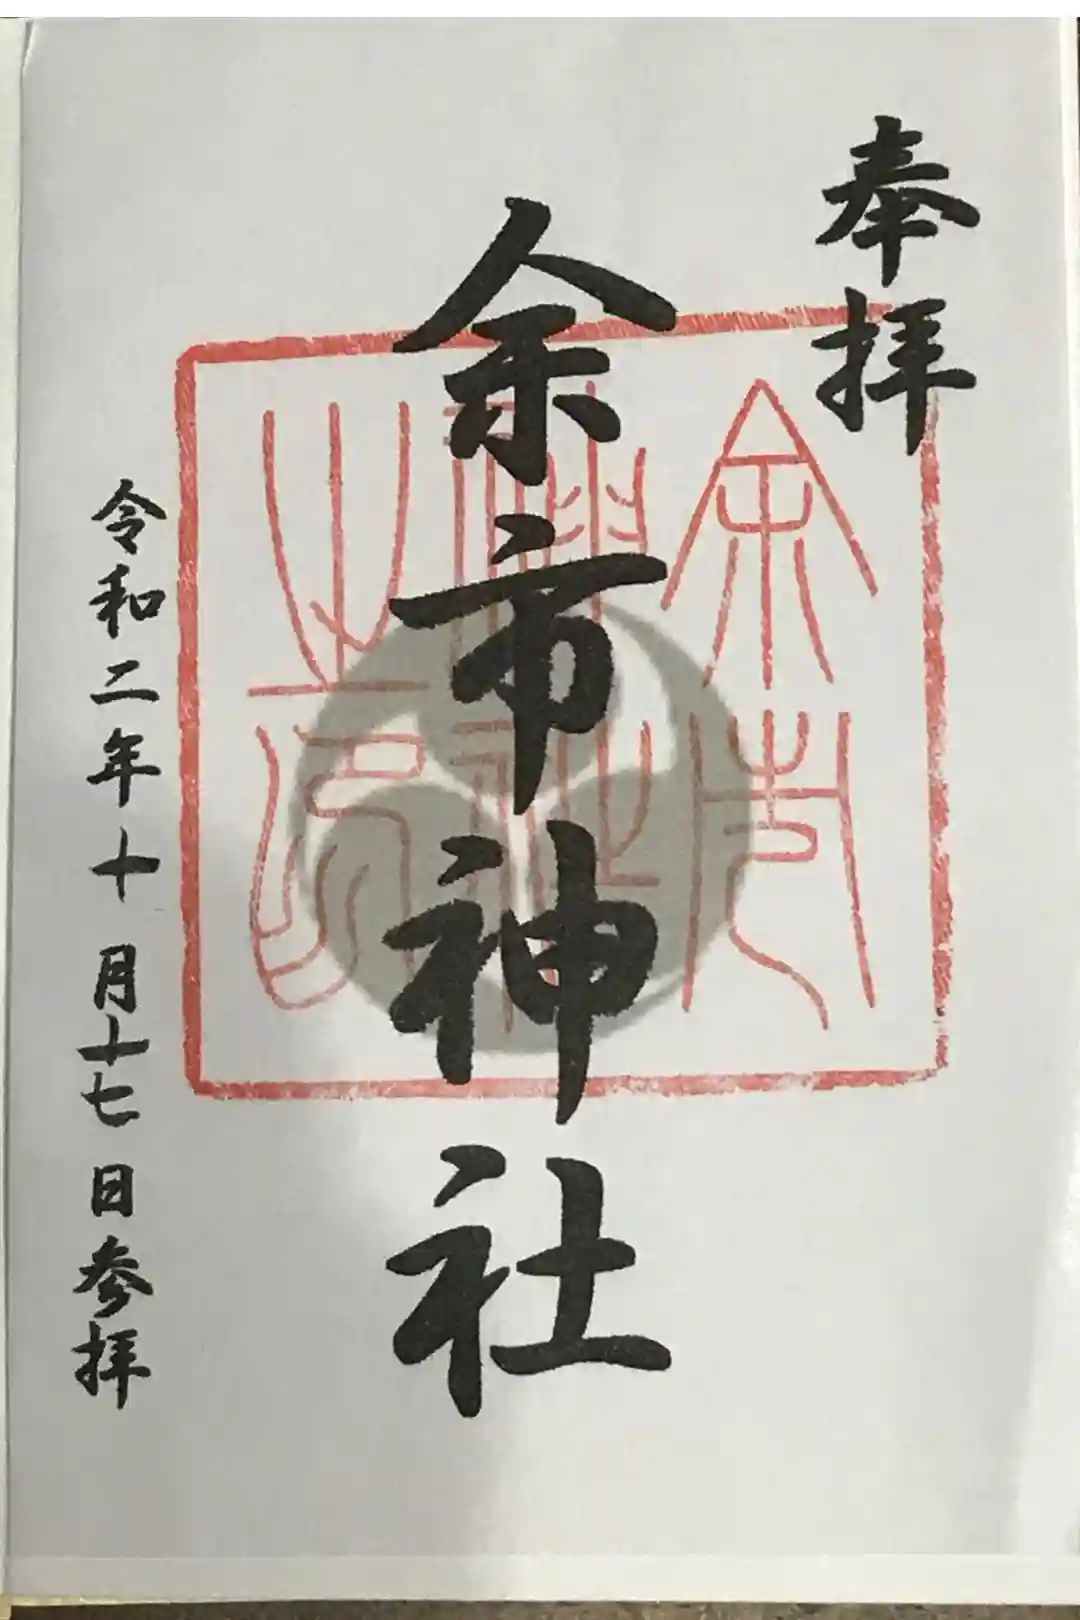 奉拝
余市神社
余市神社之印
令和二年十月十七日参拝